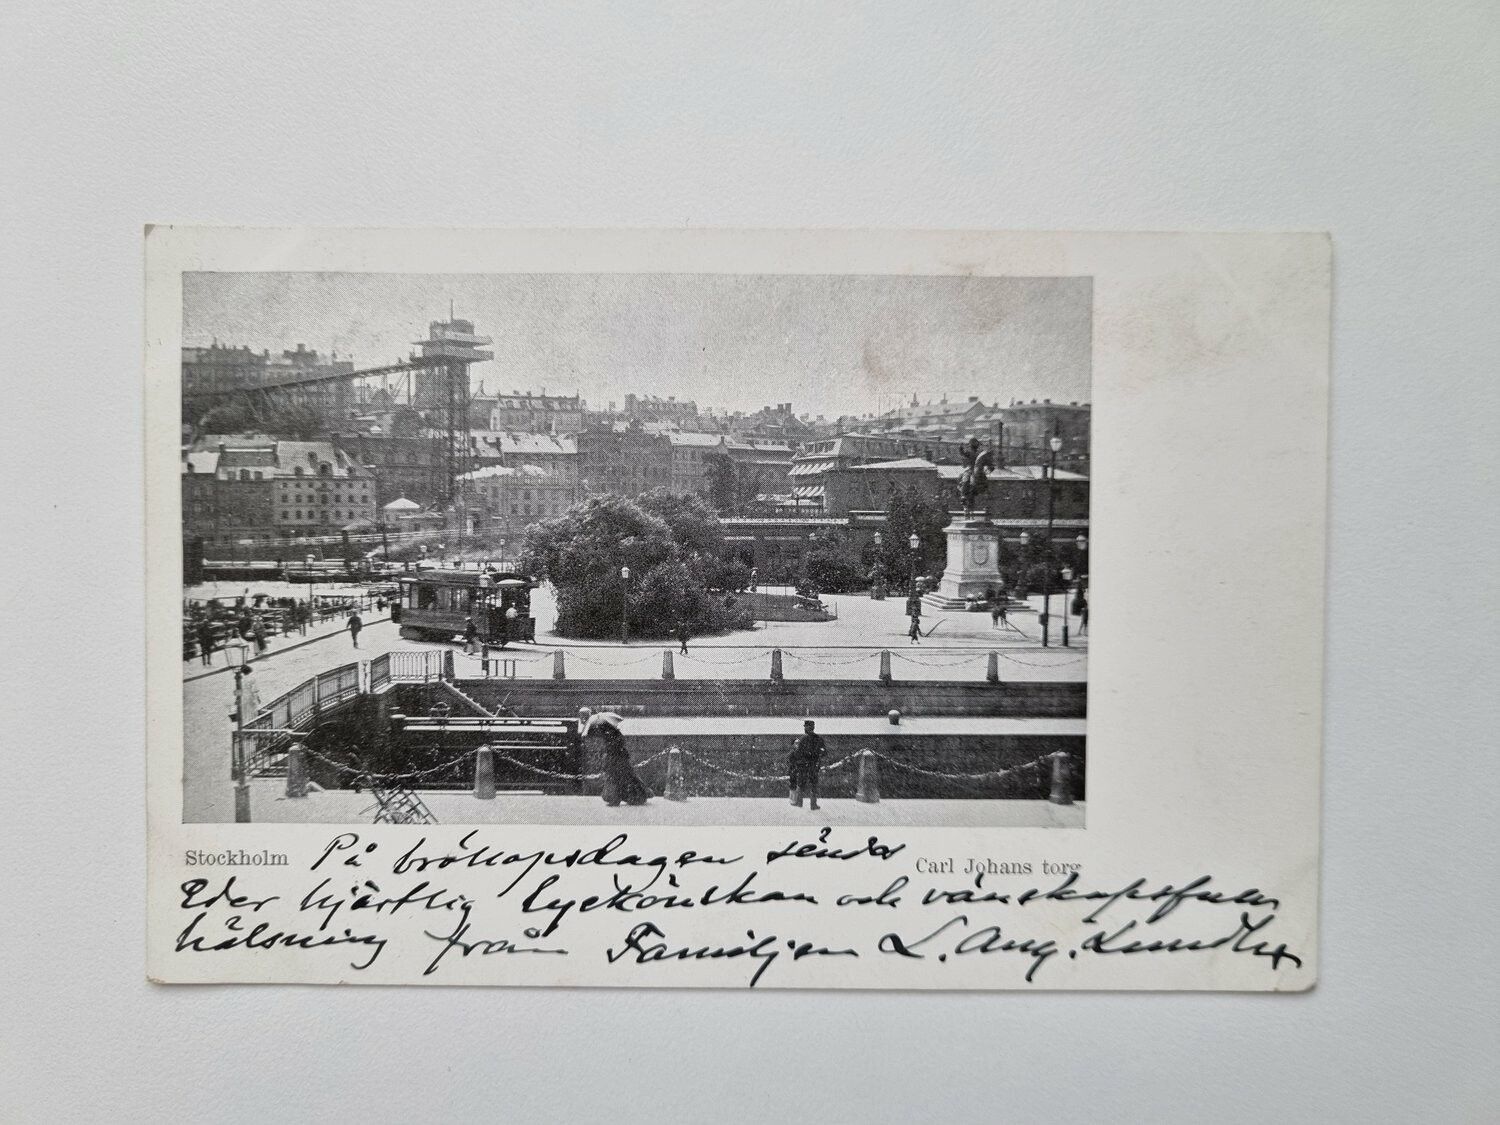 Stockholm
Carl Johans torg
På bröllopsdagen sändes
Eder hjärtlig lyckönskan och vänskapsfull
hälsning från Familjen L. Aug.